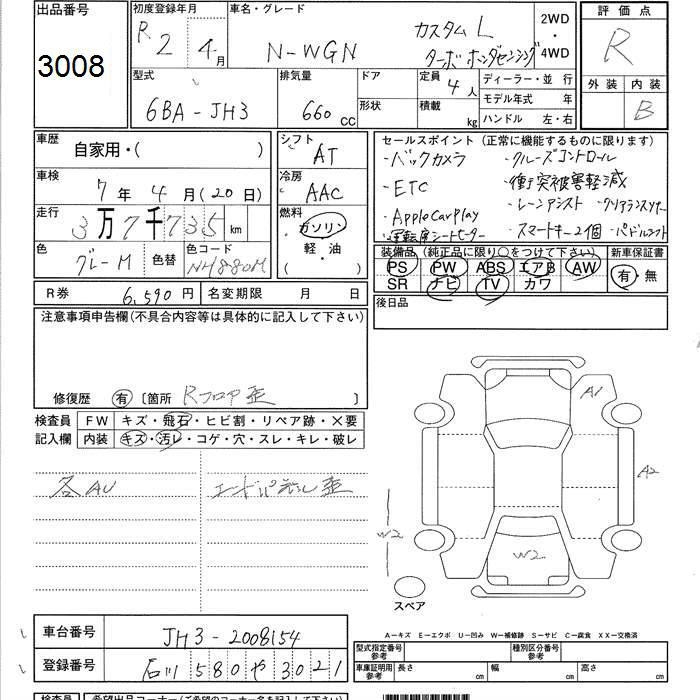 出品番号
3008
初度登録年月
R 2年 4月
車名・グレード
N-WGN
カスタム L
ターボ ホンダセンシング
2WD
・
4WD
評価点
R
外装 内装
B
型式
6BA-JH3
排気量
660cc
ドア
形状
定員 4人
積載 kg
ディーラー・並 行
モデル年式 年
ハンドル 左・右
車歴
自家用・( )
車検
7年 4月(20日)
走行
3万7千735km
色
グレーM
色替
色コード
NH880M
シフト
AT
冷房
AAC
燃料
ガソリン
軽・油
( )
セールスポイント (正常に機能するものに限ります)
・バックカメラ ・クルーズコントロール
・ETC ・衝突被害軽減
・AppleCarPlay ・レーンアシスト ・クリアランスソナー
・運転席シートヒーター ・スマートキー2個 ・パドルシフト
装備品 (純正品に限り○をつけて下さい)
PS PW ABS エアB AW
SR ナビ TV カワ
新車保証書
有・無
後日品
R券 6,590円
名変期限 月 日
注意事項申告欄(不具合内容等は具体的に記入して下さい)
修復歴 有 〔箇所 Rフロア歪 〕
検査員
記入欄
FW キズ・飛石・ヒビ割・リペア跡・×要
内装 キズ・汚レ・コゲ・穴・スレ・キレ・破レ
各AU
エンドパネル歪
A1
A2
W2
W2
スペア
A-キズ E-エクボ U-凹み W-補修跡 S-サビ C-腐食 XX-交換済
車台番号
JH3-2008154
登録番号
石川 580 や 3021
型式指定番号
参考
種別区分番号
参考
車庫証明用
参考
長さ cm
幅 cm
高さ cm
検査員
希望出品コーナー(ご希望のコーナー名を記入して下さい)